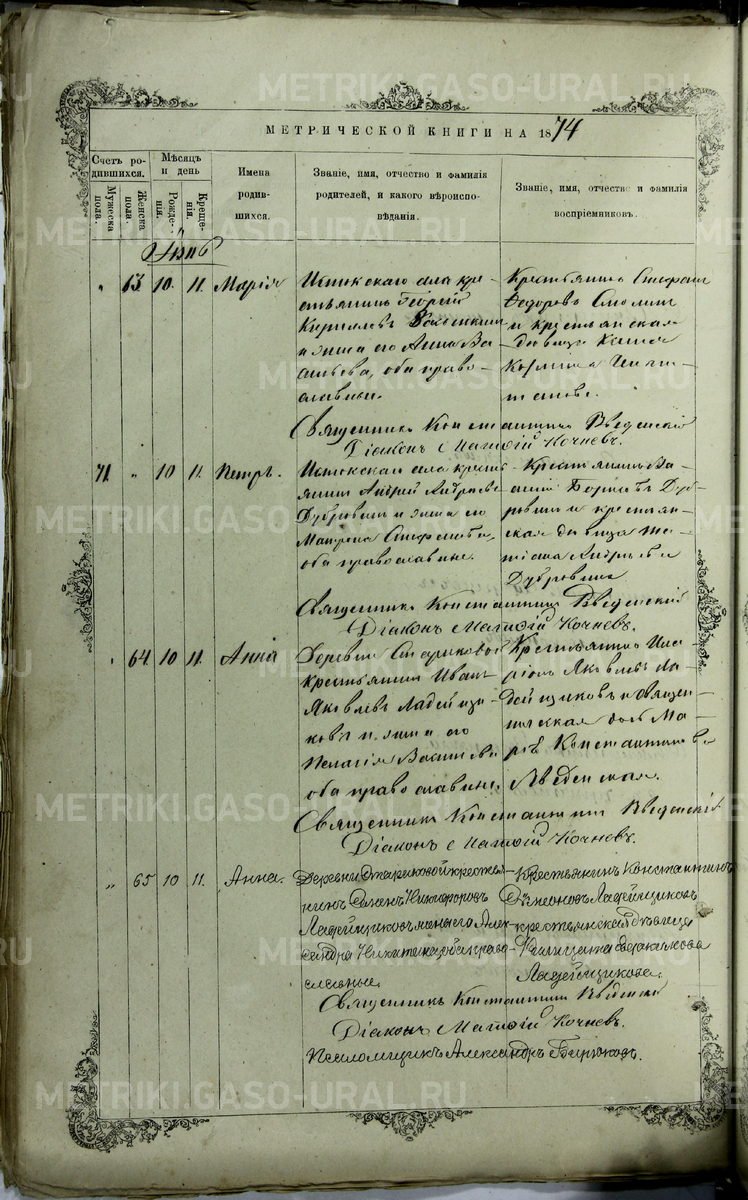 METRIKI.GASO-URAL.RU
МЕТРИЧЕСКОЙ КНИГИ НА 1874
Счетъ ро-
дившихся.
Мужеска
пола.
Женска
пола.
Мѣсяцъ
и день
Рожде-
нія.
Креще-
нія.
Имена
родив-
шихся.
Званіе, имя, отчество и фамилія
родителей, и какого вѣроиспо-
вѣданія.
Званіе, имя, отчество и фамилія
воспріемниковъ.
„ 63 10 11. Марія
Истокскаго села кре-
стьянинъ Георгій
Кирилловъ
и жена его Анна Ва-
сильева, оба право-
славные.
Крестьянинъ Стефанъ
Федоровъ Смолинъ
и крестьянская
дѣвица
Священникъ Константинъ Введенскій
Діаконъ Матѳій Кочневъ.
71 „ 10 11. Петръ.
Истокскаго села кресть-
янинъ Андрей Андреевъ
Дубровинъ и жена его
Мавра
оба православные.
Крестьянинъ Ва-
силій Борисовъ Дуб-
ровинъ и крестьян-
ская дѣвица Та-
тіана Андреева
Дубровина
Священникъ Константинъ Введенскій
Діаконъ Матѳій Кочневъ.
„ 64 10 11. Анна
Деревни Стариковой
крестьянинъ Иванъ
Яковлевъ Ладейщи-
ковъ и жена его
Пелагія Васильева
оба православные.
Крестьянинъ Ила-
ріонъ Яковлевъ Ла-
дейщиковъ и священ-
ническая дочь Ма-
рія Константинова
Введенская.
Священникъ Константинъ Введенскій
Діаконъ Матѳій Кочневъ.
„ 65 10 11. Анна.
Деревни Стариковой крестья-
нинъ Семенъ Никифоровъ
Ладейщиковъ и жена его Алек-
сандра Никитина, оба право-
славные.
Крестьянинъ Константинъ
Симеоновъ Ладейщиковъ
и крестьянская дѣвица
Ладейщикова.
Священникъ Константинъ Введенскій
Діаконъ Матѳій Кочневъ.
Псаломщикъ Александръ Бирюковъ.